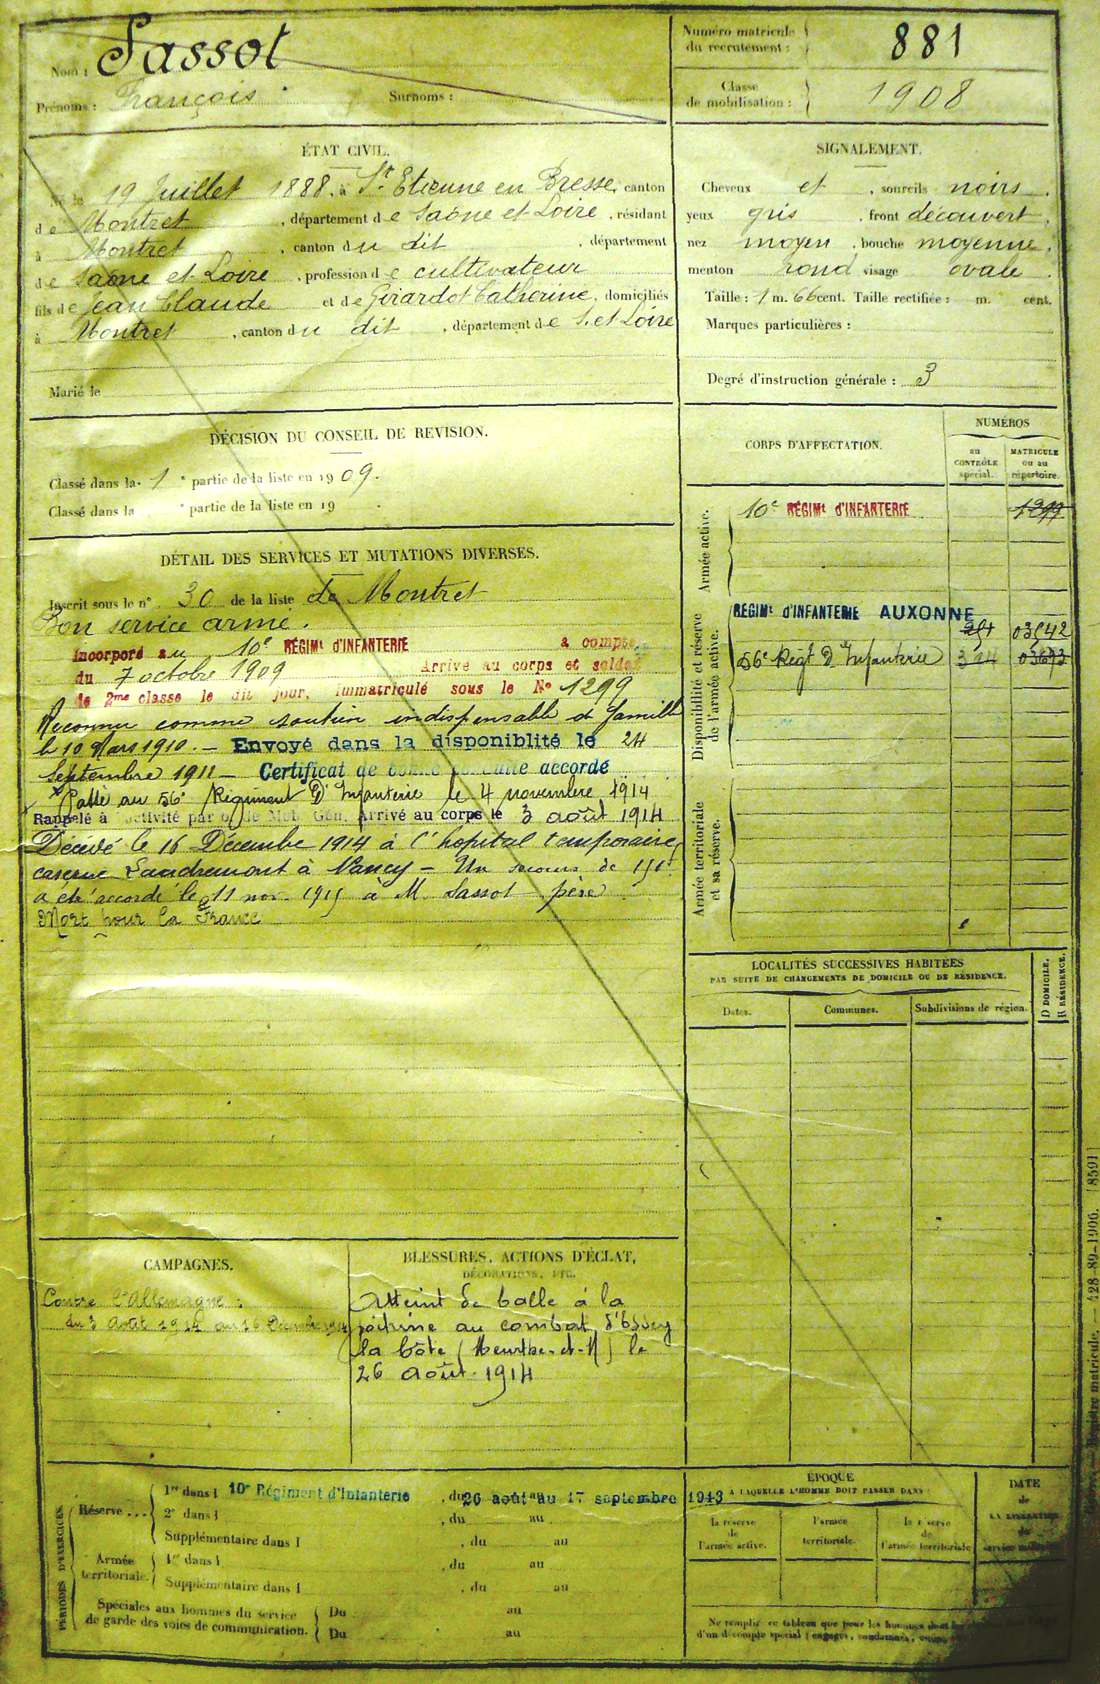 Nom : Sassot
Prénoms : François Surnoms :
Numéro matricule du recrutement : 881
Classe de mobilisation : 1908
ÉTAT CIVIL.
Né le 19 Juillet 1888, à St Etienne en Bresse, canton
de Montret, département de Saône et Loire, résidant
à Montret, canton du dit, département
de Saône et Loire, profession de cultivateur
fils de Jean Claude et de Girardot Catherine, domiciliés
à Montret, canton du dit, département de S. et Loire
Marié le
SIGNALEMENT.
Cheveux et, sourcils noirs.
yeux gris, front découvert,
nez moyen, bouche moyenne,
menton rond visage ovale.
Taille : 1 m. 66 cent. Taille rectifiée : m. cent.
Marques particulières :
Degré d'instruction générale : 3
DÉCISION DU CONSEIL DE REVISION.
Classé dans la 1e partie de la liste en 1909.
Classé dans la e partie de la liste en 19 .
DÉTAIL DES SERVICES ET MUTATIONS DIVERSES.
Inscrit sous le n° 30 de la liste de Montret
Bon service armé.
Incorporé au 10e RÉGIMt D'INFANTERIE à compter
du 7 octobre 1909 Arrivé au corps et soldat
de 2me classe le dit jour, immatriculé sous le N° 1299
Reconnu comme soutien indispensable de famille
le 10 Mars 1910. — Envoyé dans la disponiblité le 24
Septembre 1911 — Certificat de bonne conduite accordé
x Passé au 56e Régiment d'Infanterie le 4 novembre 1914
x Rappelé à l'activité par o. de Mob. Gén. Arrivé au corps le 3 août 1914
Décédé le 16 Décembre 1914 à l'hopital temporaire,
caserne Landremont à Nancy — Un secours de 150f
a été accordé le 11 nov. 1915 à M. Sassot père
Mort pour la France
CORPS D'AFFECTATION.
NUMÉROS
au CONTRÔLE spécial.
MATRICULE ou au répertoire.
Armée active.
10e RÉGIMt D'INFANTERIE 1299
Disponibilité et réserve de l'armée active.
RÉGIMt D'INFANTERIE AUXONNE
03642
56e Régt d'Infanterie
Armée territoriale et sa réserve.
LOCALITÉS SUCCESSIVES HABITÉES
PAR SUITE DE CHANGEMENTS DE DOMICILE OU DE RÉSIDENCE.
Dates. Communes. Subdivisions de région.
D DOMICILE,
R RÉSIDENCE.
CAMPAGNES.
Contre l'Allemagne :
du 3 Août 1914 au 16 Décembre 1914
BLESSURES, ACTIONS D'ÉCLAT,
DÉCORATIONS, ETC.
Atteint de balle à la
poitrine au combat d'
la Côte (Meurthe-et-M) le
26 août 1914
PÉRIODES D'EXERCICES.
Réserve ...
1re dans l 10e Régiment d'Infanterie, du 26 août au 17 septembre 1913
2e dans l , du au
Supplémentaire dans l , du au
Armée territoriale.
1re dans l , du au
Supplémentaire dans l , du au
Spéciales aux hommes du service
de garde des voies de communication.
Du au
Du au
ÉPOQUE
A LAQUELLE L'HOMME DOIT PASSER DANS :
la réserve de l'armée active.
l'armée territoriale.
la réserve de l'armée territoriale
DATE
de
LA LIBÉRATION
du
Ne remplir ce tableau que pour les hommes
d'un décompte spécial (engagés, condamnés,
Registre matricule. — 428-89-1906. [8591]